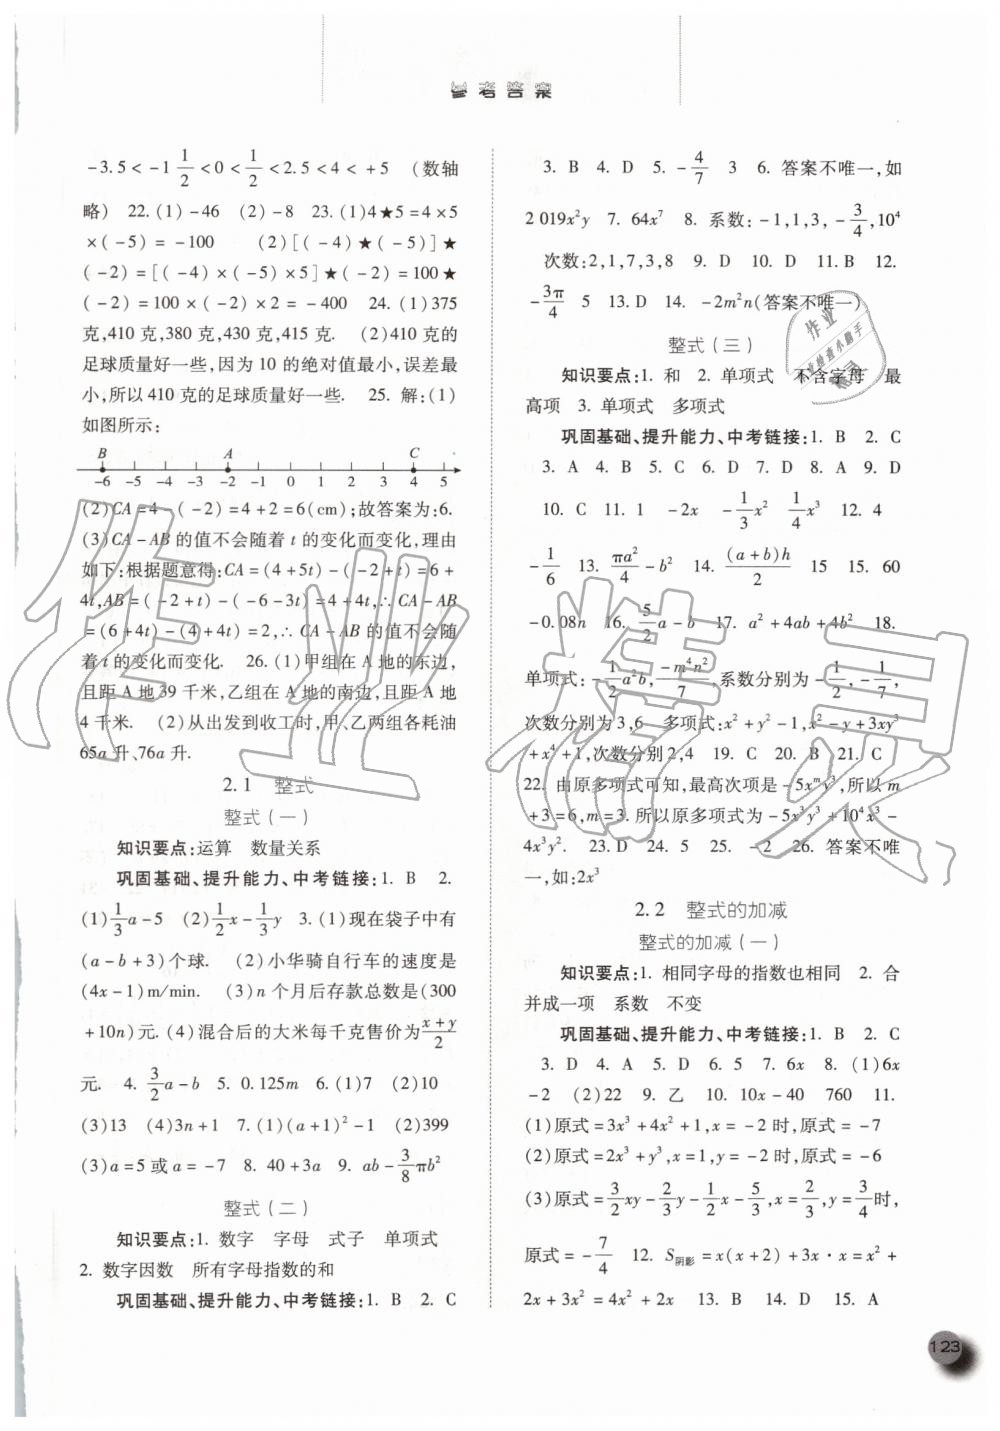 参考答案
-3.5<-1 1/2<0<1/2<2.5<4<+5 (数轴
略) 22.(1)-46 (2)-8 23.(1)4★5=4×5
×(-5)=-100 (2)[(-4)★(-5)]★
(-2)=[(-4)×(-5)×5]★(-2)=100★
(-2)=100×(-2)×2=-400 24.(1)375
克,410克,380克,430克,415克. (2)410克的
足球质量好一些,因为10的绝对值最小,误差最
小,所以410克的足球质量好一些. 25. 解:(1)
如图所示:
B A C
-6 -5 -4 -3 -2 -1 0 1 2 3 4 5
(2)CA=4-(-2)=4+2=6(cm);故答案为:6.
(3)CA-AB的值不会随着t的变化而变化,理由
如下:根据题意得:CA=(4+5t)-(-2+t)=6+
4t,AB=(-2+t)-(-6-3t)=4+4t,∴CA-AB
=(6+4t)-(4+4t)=2,∴CA-AB的值不会随
着t的变化而变化. 26.(1)甲组在A地的东边,
且距A地39千米,乙组在A地的南边,且距A地
4千米. (2)从出发到收工时,甲、乙两组各耗油
65a升、76a升.
2.1 整式
整式(一)
知识要点:运算 数量关系
巩固基础、提升能力、中考链接:1. B 2.
(1)1/3a-5 (2)1/2x-1/3y 3.(1)现在袋子中有
(a-b+3)个球. (2)小华骑自行车的速度是
(4x-1)m/min. (3)n个月后存款总数是(300
+10n)元.(4)混合后的大米每千克售价为(x+y)/2
元. 4. 3/2a-b 5. 0.125m 6.(1)7 (2)10
(3)13 (4)3n+1 7.(1)(a+1)²-1 (2)399
(3)a=5或a=-7 8. 40+3a 9. ab-3/8πb²
整式(二)
知识要点:1. 数字 字母 式子 单项式
2. 数字因数 所有字母指数的和
巩固基础、提升能力、中考链接:1. B 2. C
3. B 4. D 5. -4/7 3 6. 答案不唯一,如
2 019x²y 7. 64x⁷ 8. 系数:-1,1,3,-3/4,10⁴
次数:2,1,7,3,8 9. D 10. D 11. B 12.
-3π/4 5 13. D 14. -2m²n(答案不唯一)
整式(三)
知识要点:1. 和 2. 单项式 不含字母 最
高项 3. 单项式 多项式
巩固基础、提升能力、中考链接:1. B 2. C
3. A 4. B 5. C 6. D 7. D 8. A 9. D
10. C 11. 1 -2x -1/3x² 1/4x³ 12. 4
-1/6 13. πa²/4-b² 14. (a+b)h/2 15 15. 60
-0.08n 16. 5/2a-b 17. a²+4ab+4b² 18.
单项式:-1/2a²b,-m⁴n²/7,系数分别为-1/2,-1/7,
次数分别为3,6 多项式:x²+y²-1,x²-y+3xy³
+x⁴+1,次数分别2,4 19. C 20. B 21. C
22. 由原多项式可知,最高次项是-5xᵐy³,所以m
+3=6,m=3.所以原多项式为-5x³y³+10⁴x³-
4x³y². 23. D 24. 5 25. -2 26. 答案不唯
一,如:2x³
2.2 整式的加减
整式的加减(一)
知识要点:1. 相同字母的指数也相同 2. 合
并成一项 系数 不变
巩固基础、提升能力、中考链接:1. B 2. C
3. D 4. A 5. D 6. 5 7. 6x 8.(1)6x
-2 (2)22 9. 乙 10. 10x-40 760 11.
(1)原式=3x³+4x²+1,x=-2时,原式=-7
(2)原式=2x³+y³,x=-2时,原式=-6
(3)原式=3/2xy-2/3y-1/2x-5/3,x=2/3,y=3/4时,
原式=-7/4 12. S阴影=x(x+2)+3x·x=x²+
2x+3x²=4x²+2x 13. B 14. D 15. A
123
作业精灵
作业